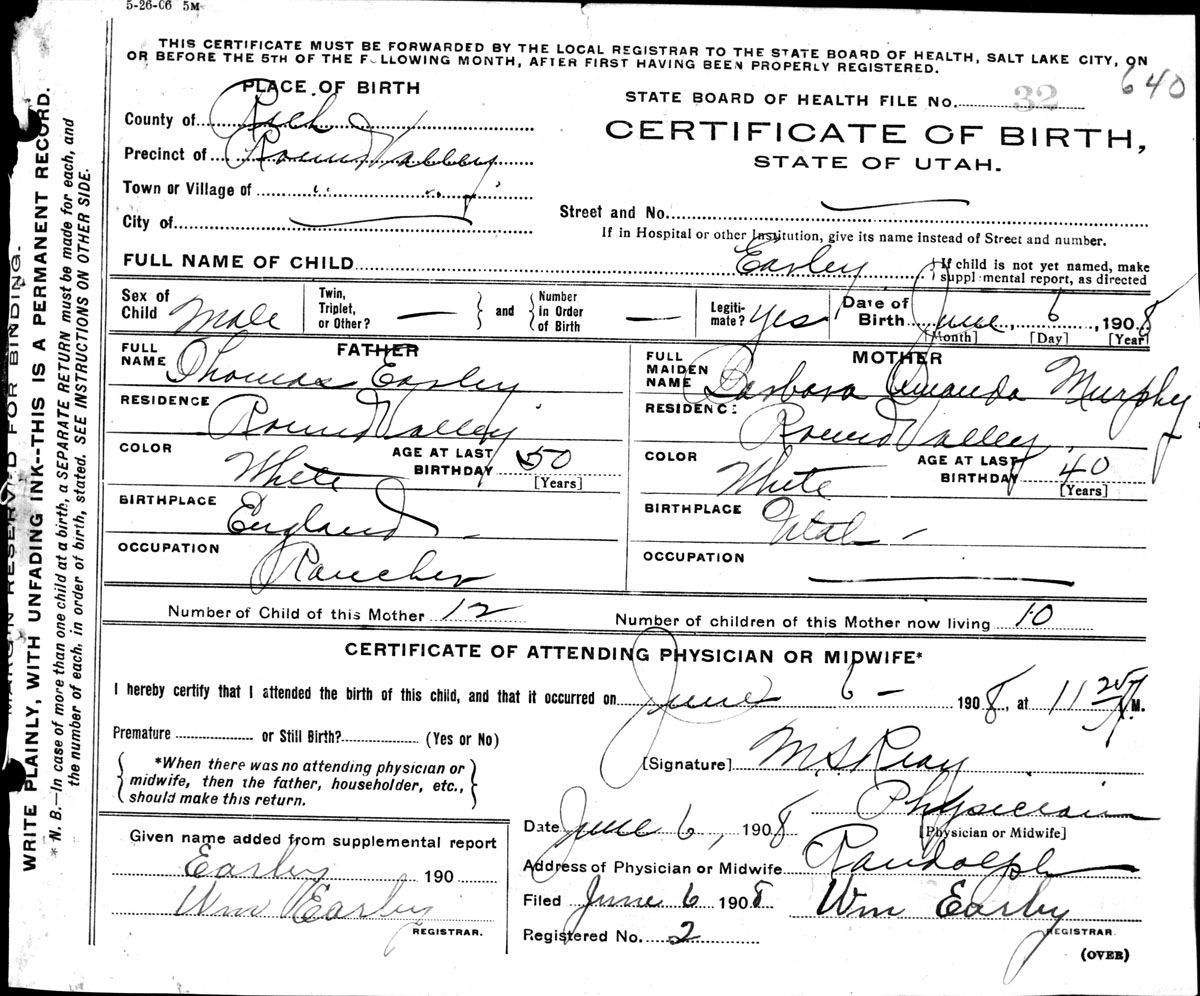 5-26-06 5M
THIS CERTIFICATE MUST BE FORWARDED BY THE LOCAL REGISTRAR TO THE STATE BOARD OF HEALTH, SALT LAKE CITY, ON
OR BEFORE THE 5TH OF THE F LLOWING MONTH, AFTER FIRST HAVING BEEN PROPERLY REGISTERED.
640
PLACE OF BIRTH
STATE BOARD OF HEALTH FILE No. 32
County of Rich
CERTIFICATE OF BIRTH,
Precinct of Round Valley
STATE OF UTAH.
Town or Village of " "
City of —
Street and No. —
If in Hospital or other Institution, give its name instead of Street and number.
FULL NAME OF CHILD Earley { If child is not yet named, make
suppl mental report, as directed
Sex of Child Male
Twin, Triplet, or Other? — } and { Number in Order of Birth —
Legiti-mate? Yes
Date of Birth June, 6, 1908
[Month] [Day] [Year]
FATHER
FULL NAME Thomas Earley
RESIDENCE Round Valley
COLOR White AGE AT LAST BIRTHDAY 50
[Years]
BIRTHPLACE England
OCCUPATION Rancher
MOTHER
FULL MAIDEN NAME Barbara Amanda Murphy
RESIDENC: Round Valley
COLOR White AGE AT LAST BIRTHDAY 40
[Years]
BIRTHPLACE Utah -
OCCUPATION —
Number of Child of this Mother 12
Number of children of this Mother now living 10
CERTIFICATE OF ATTENDING PHYSICIAN OR MIDWIFE*
I hereby certify that I attended the birth of this child, and that it occurred on June 6 - 1908, at 11 25 M.
Premature or Still Birth? (Yes or No)
*When there was no attending physician or
midwife, then the father, householder, etc.,
should make this return.
[Signature] M. S. Reay
Physician
[Physician or Midwife]
Date June 6, 1908
Address of Physician or Midwife Randolph
Filed June 6 1908 Wm Earby
REGISTRAR
Registered No. 2
(OVER)
Given name added from supplemental report
Earby 190
Wm Earby
REGISTRAR.
MARGIN RESERVED FOR BINDING.
WRITE PLAINLY, WITH UNFADING INK--THIS IS A PERMANENT RECORD.
* N. B.—In case of more than one child at a birth, a SEPARATE RETURN must be made for each, and
the number of each, in order of birth, stated. SEE INSTRUCTIONS ON OTHER SIDE.